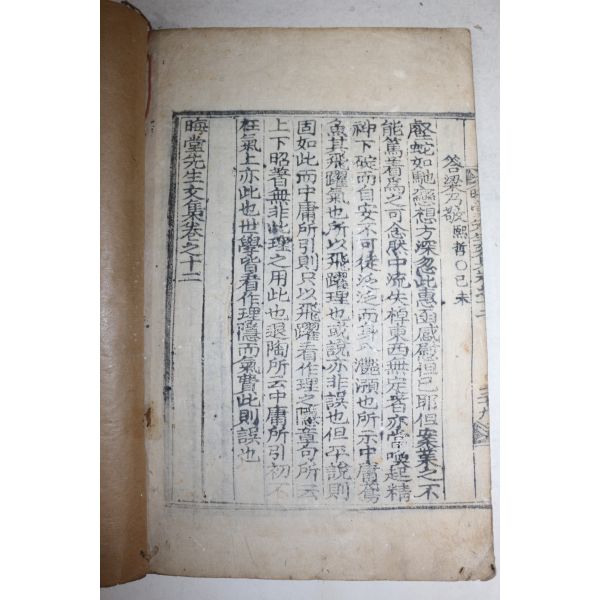 答梁敬熙哲○己未
壑蛇如馳戀想方深忽此惠函感慰但已耶但業之不
能篤着爲之可念厭中流失棹東西無定者亦當喚起精
神下碇而自安不可徒泛泛而灧澦也所示中庸鳶
魚其飛躍氣也所以飛躍理也或說亦非誤也但平說則
固如此而中庸所引則只以飛躍看作理之隱章句所云
上下昭著無非此理之用此也退陶所云中庸所引初不
在氣上亦此也世學皆看作理隱而氣費此則誤也
晦堂先生文集卷之十二